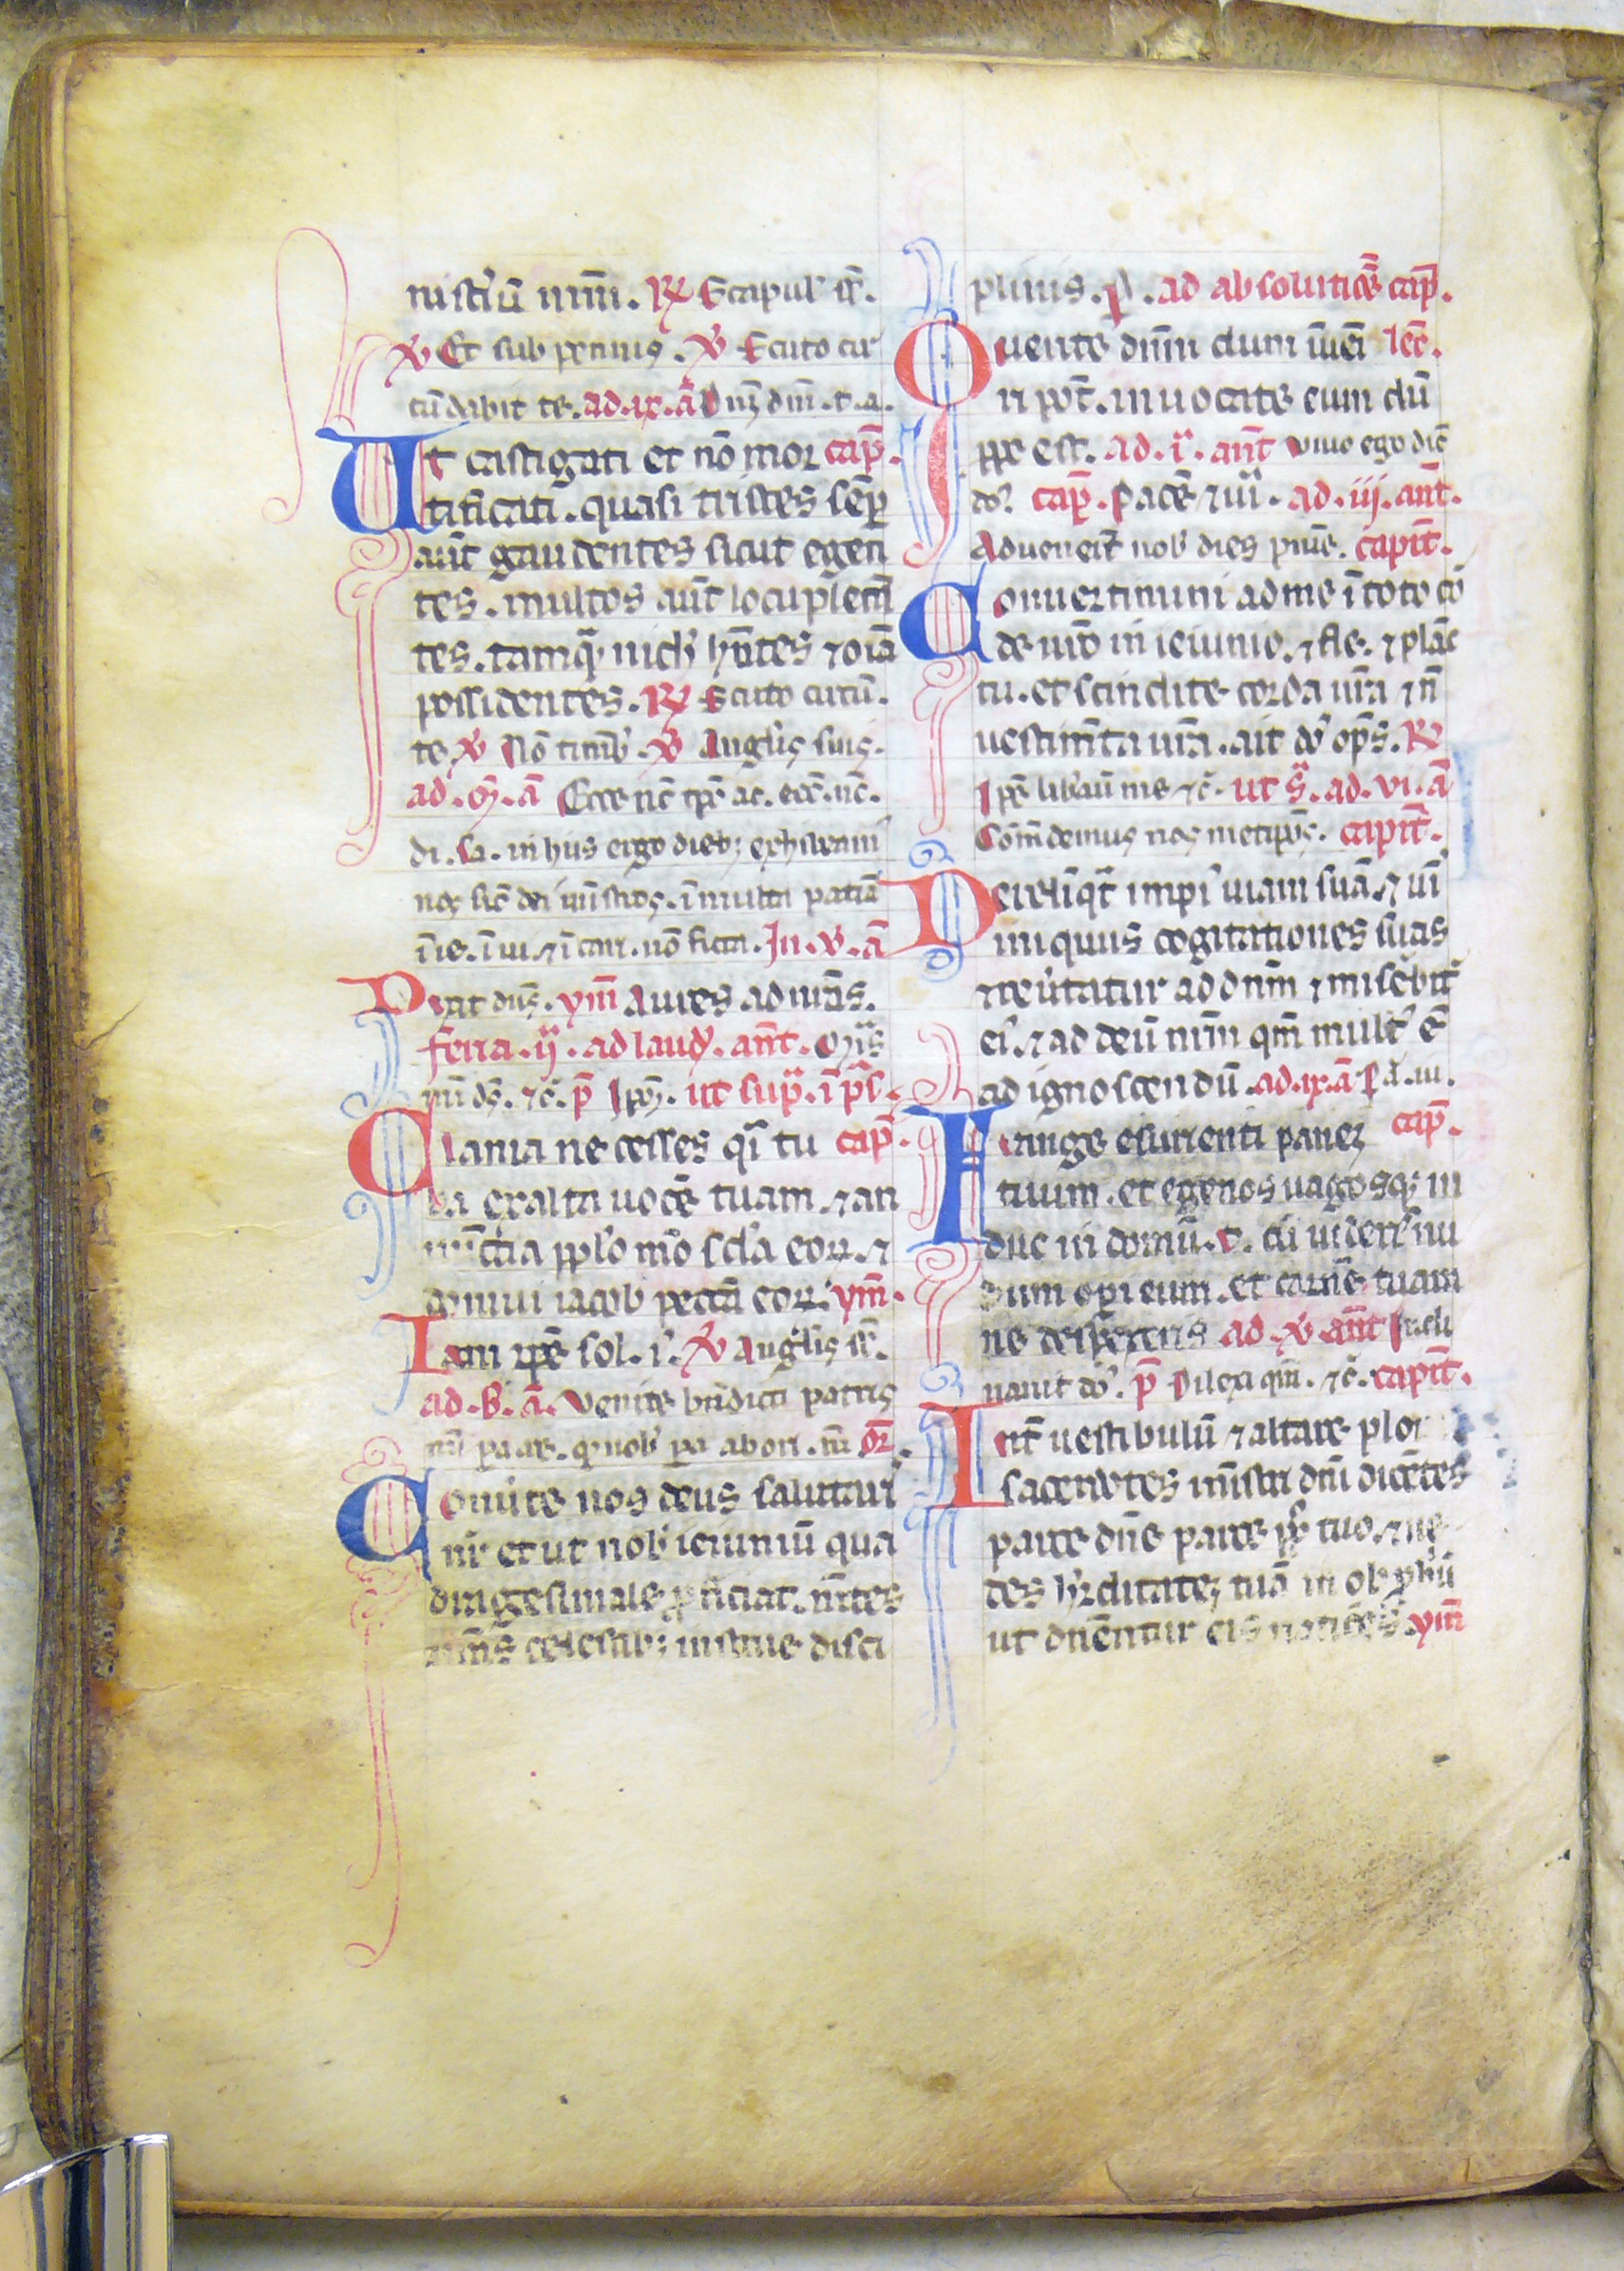 nistiū nr̄m. R̸ Scapul' s̄.
℣ Et sub pennis. ℣ Scuto cir
cūdabit te. ad .ix. ā Dn̄ꝫ dm̄. t. a.
Ut castigati et nō mor cap̄.
tificati. quasi tristes sēp
aūt gaudentes sicut egen
tes. multos aūt locupletā
tes. tamq̄ nich' hn̄tes ⁊ oīa
possidentes. R̸ Scuto circū.
te ℣ Nō timeb'. ℣ Angl'is suis.
ad. ā Ecce nc̄ tp̄s ac̄. ecc̄. nc̄.
di. sa. in hiis ergo dieb; exhibeam'
nos sic̄ dei mīistros. ī multa patīa
ī ie. ī ui. ⁊ ī cari. nō ficta. In. ℣. ā
Dixit dn̄s. ym̄ Aures ad nr̄as.
feria .ij. ad laud'. ant̄.
ds̄. ⁊c̄. p̄ ut sup̄. ī ps̄.
Clama ne cesses qī tu cap̄.
ba exalta uocē tuam. ⁊ an
nūctia pp̄lo mō scl'a eoꝝ. ⁊
domui iacob peccā eoꝝ. ym̄.
Iam xp̄e sol. i'. ℣ Angl'is s̄.
ad. b̄. ā. Venite bn̄dicti patris
mī pa ab ori. mū or̄.
Conuīte nos deus salutari
nr̄ et ut nob' ieiuniū qua
dragesimale ꝓficiat. mētes
nr̄as celestib; instrue disci
plinis. P. ad absolutiōē cap̄.
Querite dn̄m dum īuēi lec̄.
ri pōt. inuocate eum dū
ꝓpe est. ad .i. ant̄ Viuo ego dic̄
do' cap̄. Pacē ⁊ uī. ad .iij. ant̄.
Aduenerūt nob' dies penīe. capit̄.
Conuertimini ad me ī toto cō
de uro in ieiunio. ⁊ fle. ⁊ plāc
tu. et scindite corda ur̄a ⁊ n̄
uestim̄ta ur̄a. ait do' op̄s. R̸
Ipē lib'auit me ⁊c̄. ut s̄. ad .vi. ā
Com̄demus nos metip̄os. capit̄.
Derelīqt̄ impi' uiam suā. ⁊ uī
iniquus cogitationes suas
⁊ reūtatur ad dn̄m ⁊ misēbit'
ei'. ⁊ ad deū nr̄m qm̄ mult' ē
ad ignoscendū. ad .ix. ā
Frange esurienti panez cap̄.
tuum. et egenos uagosqꝫ in
duc in domū. t. cū uideris nu
dum opi eum. et carnē tuam
ne despexeris ad ℣ ant̄ Incli
nauit do'. p̄ Dilexi qm̄. ⁊c̄. capit̄.
Int̄ uestibulū ⁊ altare plor
sacerdotes mīstri dn̄i dicētes
parce dn̄e parce tuo. ⁊ ne
des h'editatez tuā in obꝓbriū
ut dn̄entur eis natiōēs ym̄